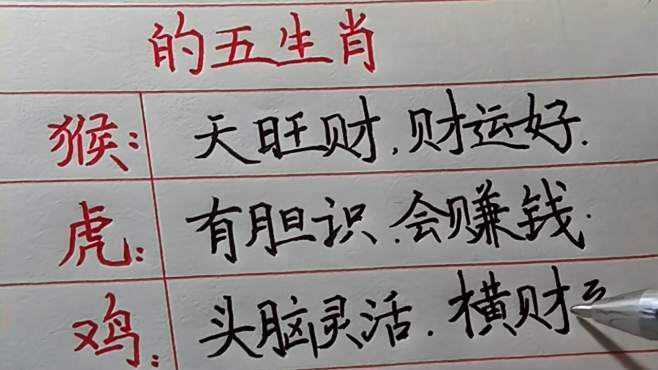 的五生肖
猴：天旺财，财运好.
虎：有胆识.会赚钱.
鸡：头脑灵活.横财